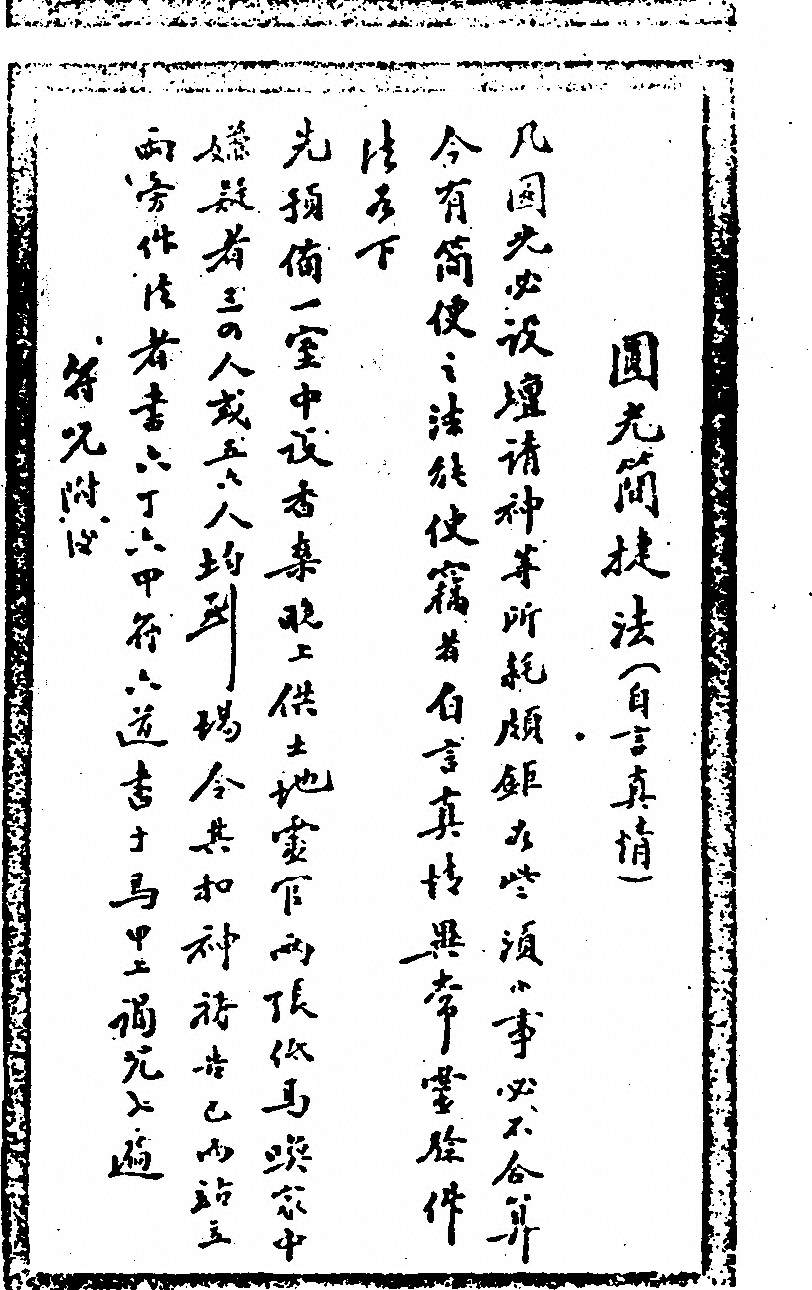 圓光简捷法(自言真情)
凡圆光必设壇请神等所耗頗鉅如些須小事必不合算
今有简便之法能使竊者自言真情異常靈驗作
法如下
先预備一室中设香案晚上供土地靈官两張纸馬唤家中
嫌疑者三四人或五六人均到場令其扣神禱告已而站立
两旁作法者書六丁六甲符六道書于馬甲上诵咒七遍
符咒附後